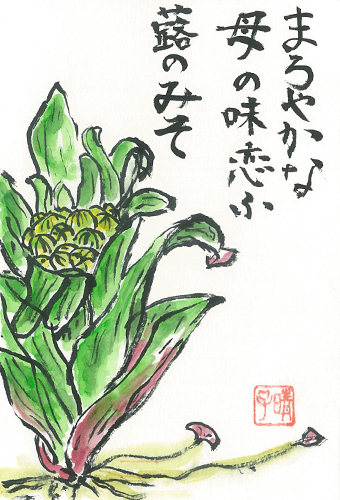 まろやかな
母の味恋ふ
蕗のみそ
晴子